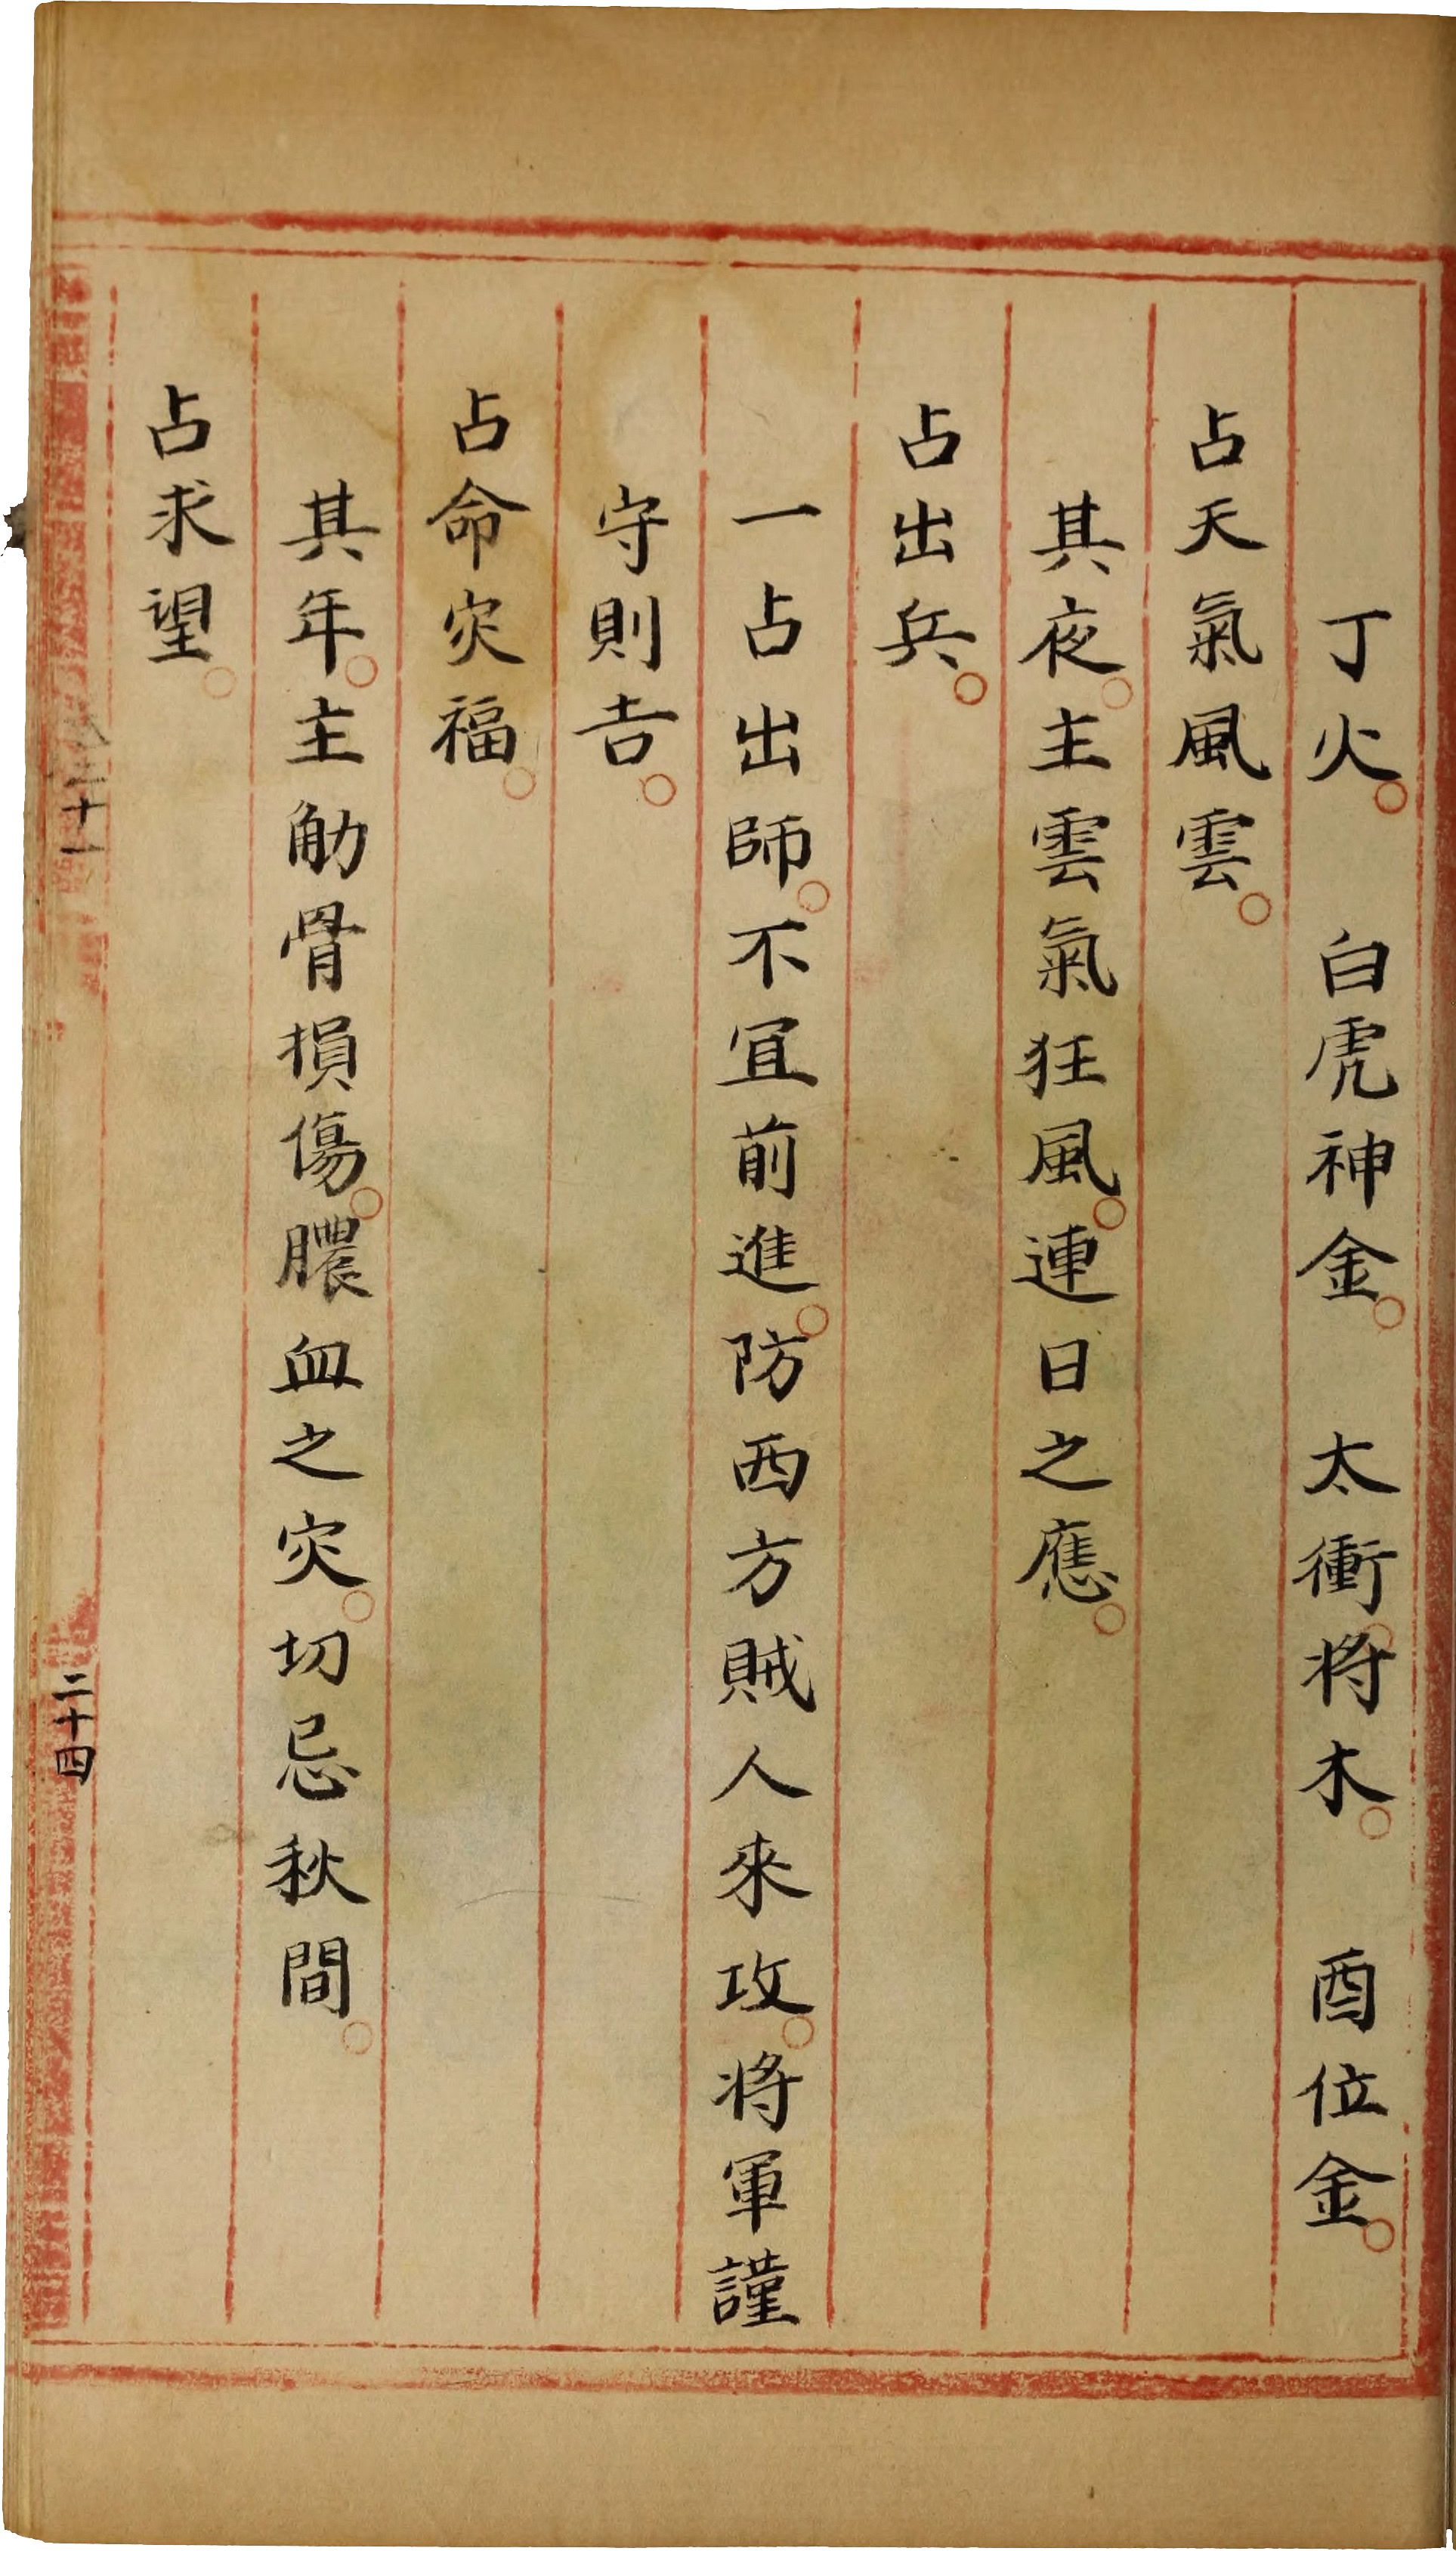 丁火。　白虎神金。　太衝。将木。　酉位金。
占天氣風雲。
其夜。主雲氣狂風。連日之應。
占出兵。
一占出師。不宜前進。防西方賊人來攻。将軍謹
守則吉。
占命灾福。
其年。主觔骨損傷。膿血之灾。切忌秋間。
占求望。
二十一
二十四